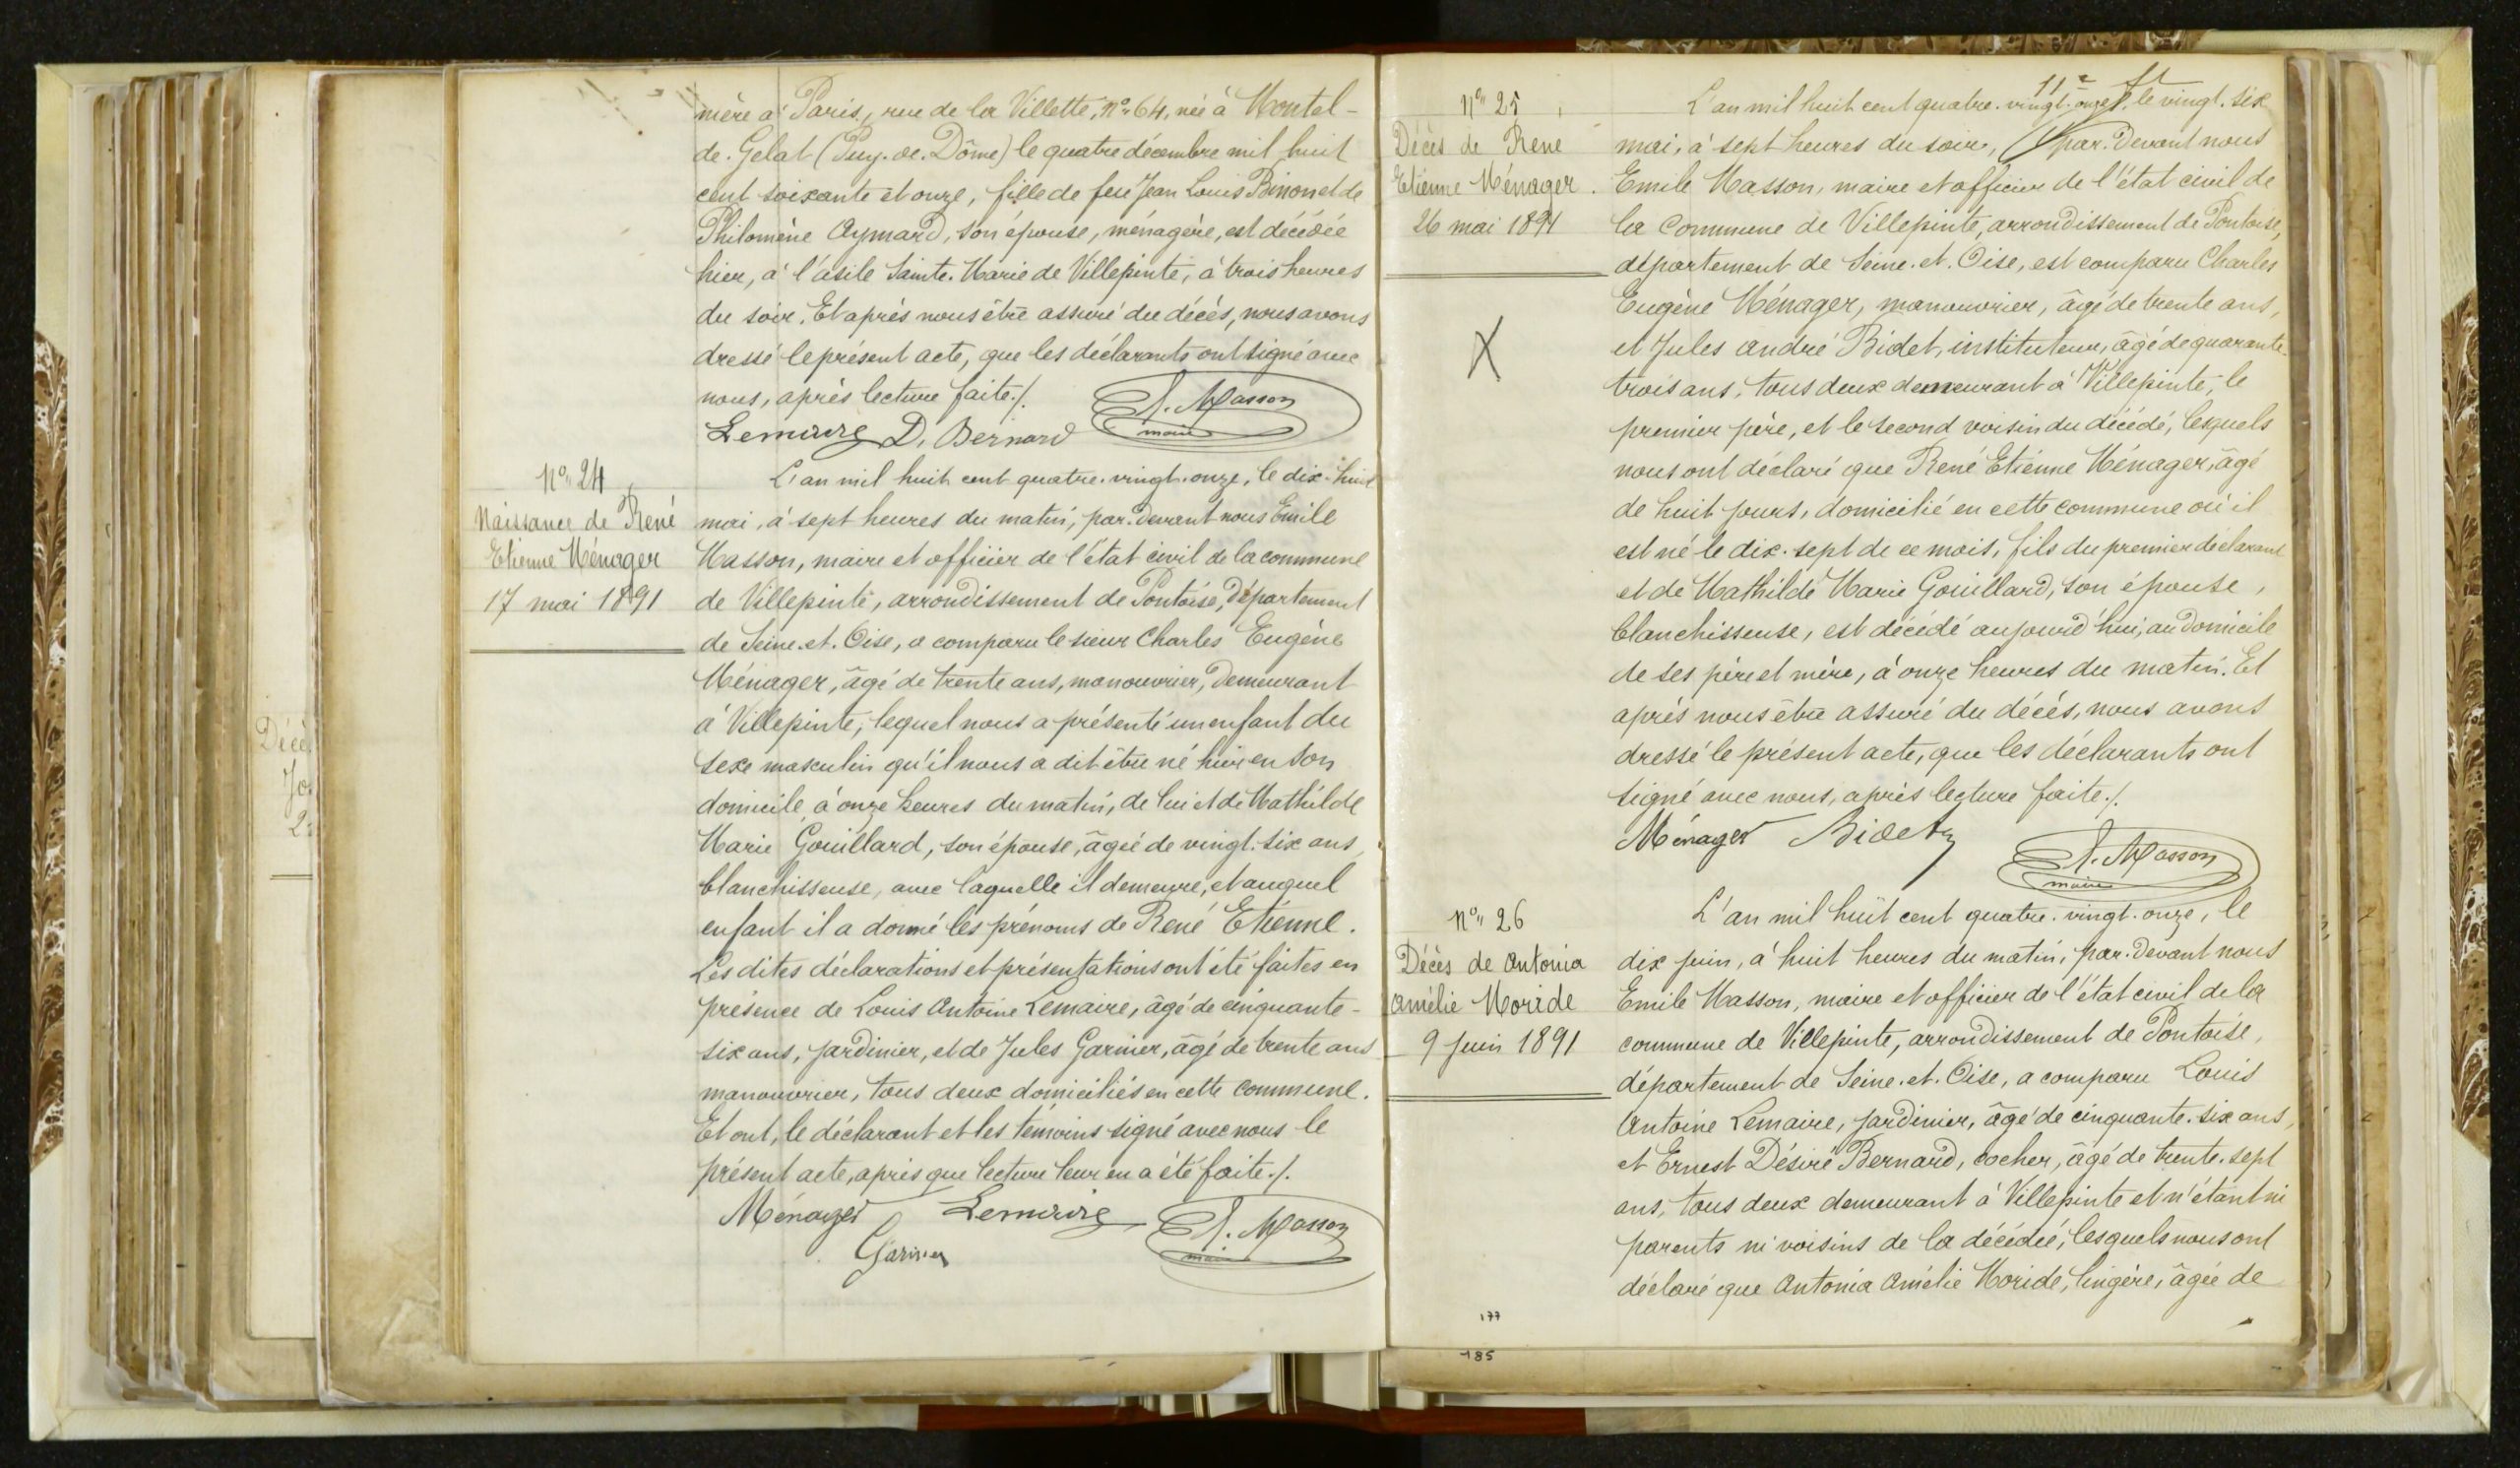 mère à Paris, rue de la Villette, N° 64, née à Montel-
de-Gelat (Puy-de-Dôme) le quatre décembre mil huit
cent soixante et onze, fille de feu Jean Louis Binon et de
Philomène Aymard, son épouse, ménagère, est décédée
hier, à l'asile Sainte-Marie de Villepinte, à trois heures
du soir. Et après nous être assuré du décès, nous avons
dressé le présent acte, que les déclarants ont signé avec
nous, après lecture faite./.
Lemaire D. Bernard E. Masson
maire
N° 24
Naissance de René
Etienne Ménager
17 mai 1891
L'an mil huit cent quatre-vingt-onze, le dix-huit
mai, à sept heures du matin, par-devant nous Emile
Masson, maire et officier de l'état civil de la commune
de Villepinte, arrondissement de Pontoise, Département
de Seine-et-Oise, a comparu le sieur Charles Eugène
Ménager, âgé de trente ans, manouvrier, demeurant
à Villepinte, lequel nous a présenté un enfant du
sexe masculin qu'il nous a dit être né hier en son
domicile, à onze heures du matin, de lui et de Mathilde
Marie Gouillard, son épouse, âgée de vingt-six ans,
blanchisseuse, avec laquelle il demeure, et auquel
enfant il a donné les prénoms de René Etienne.
Les dites déclarations et présentations ont été faites en
présence de Louis Antoine Lemaire, âgé de cinquante-
six ans, jardinier, et de Jules Garnier, âgé de trente ans
manouvrier, tous deux domiciliés en cette commune.
Et ont, le déclarant et les témoins signé avec nous le
présent acte, après que lecture leur en a été faite./.
Ménager Lemaire E. Masson
Garnier maire
Décè
Jo
2
N° 25
Décès de René
Etienne Ménager.
26 mai 1891
X
L'an mil huit cent quatre-vingt-onze, le vingt-six
mai, à sept heures du soir, par-devant nous
Emile Masson, maire et officier de l'état civil de
la Commune de Villepinte, arrondissement de Pontoise,
département de Seine-et-Oise, est comparu Charles
Eugène Ménager, manouvrier, âgé de trente ans,
et Jules André Bidet, instituteur, âgé de quarante-
trois ans, tous deux demeurant à Villepinte, le
premier père, et le second voisin du décédé, lesquels
nous ont déclaré que René Etienne Ménager, âgé
de huit jours, domicilié en cette commune où il
est né le dix-sept de ce mois, fils du premier déclarant
et de Mathilde Marie Gouillard, son épouse,
blanchisseuse, est décédé aujourd'hui, au domicile
de ses père et mère, à onze heures du matin. Et
après nous être assuré du décès, nous avons
dressé le présent acte, que les déclarants ont
signé avec nous, après lecture faite./.
Ménager Bidet E. Masson
maire
N° 26
Décès de Antonia
Amélie Moride
9 Juin 1891
L'an mil huit cent quatre-vingt-onze, le
dix juin, à huit heures du matin, par-devant nous
Emile Masson, maire et officier de l'état civil de la
commune de Villepinte, arrondissement de Pontoise,
département de Seine-et-Oise, a comparu Louis
Antoine Lemaire, jardinier, âgé de cinquante-six ans,
et Ernest Désiré Bernard, cocher, âgé de trente-sept
ans, tous deux demeurant à Villepinte et n'étant ni
parents ni voisins de la décédée, lesquels nous ont
déclaré que Antonia Amélie Moride, lingère, âgée de
177
185